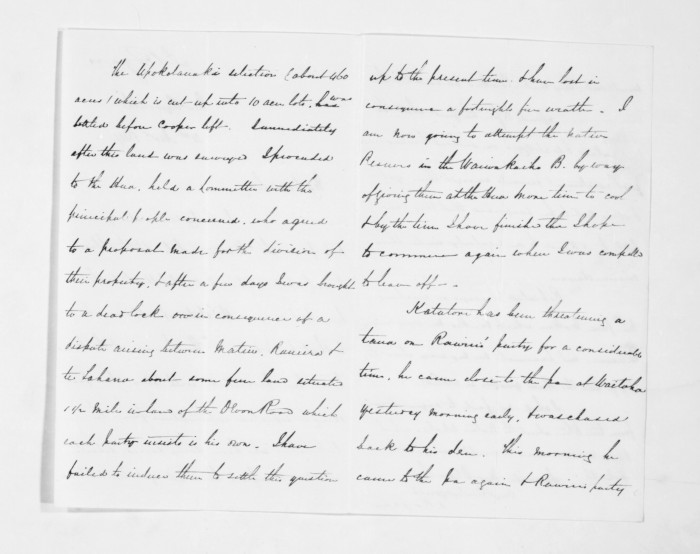 The Upokotauaki selection (about 460
acres) which is cut up into 10 acre lots, has was
settled before Cooper left. Immediately
after this land was surveyed I proceeded
to the Hua, held a Committee with the
principal people concerned, who agreed
to a proposal made for the division of
their property, & after a few days I was brought
to a dead lock even in consequence of a
dispute arising between Matiu, Raniera &
te Tahana about some fern land situate
1½ mile inland of the Devon Road which
each party insists is his own. I have
failed to induce them to settle this question
up to the present time & have lost in
consequence a fortnights fine weather. I
am now going to attempt the Native
Reserves in the Waiwakaiho B. by way
of giving them at the Hua more time to cool
& by the time I have finished there I hope
to commence again where I was compelled
to leave off.
Katatore has been threatening a
taua on Rawiri's party for a considerable
time, he came close to the pa at Waitaha
yesterday morning early, & was chased
back to his den. This morning he
came to the Pa again & Rawiri's party